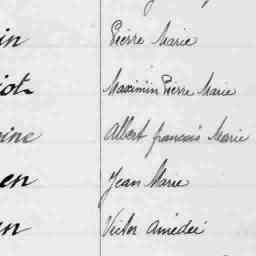 in Pierre Marie
iot Maximin Pierre Marie
ine Albert françois Marie
en Jean Marie
en Victor Amédée